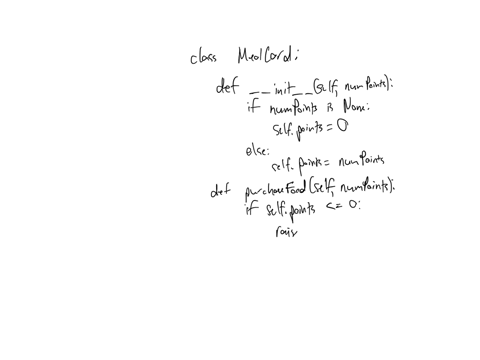 class MealCard:
def __init__(self, numPoints):
if numPoints is None:
self.points = 0
else:
self.points = numPoints
def purchaseFood(self, numPoints):
if self.points <= 0:
rais